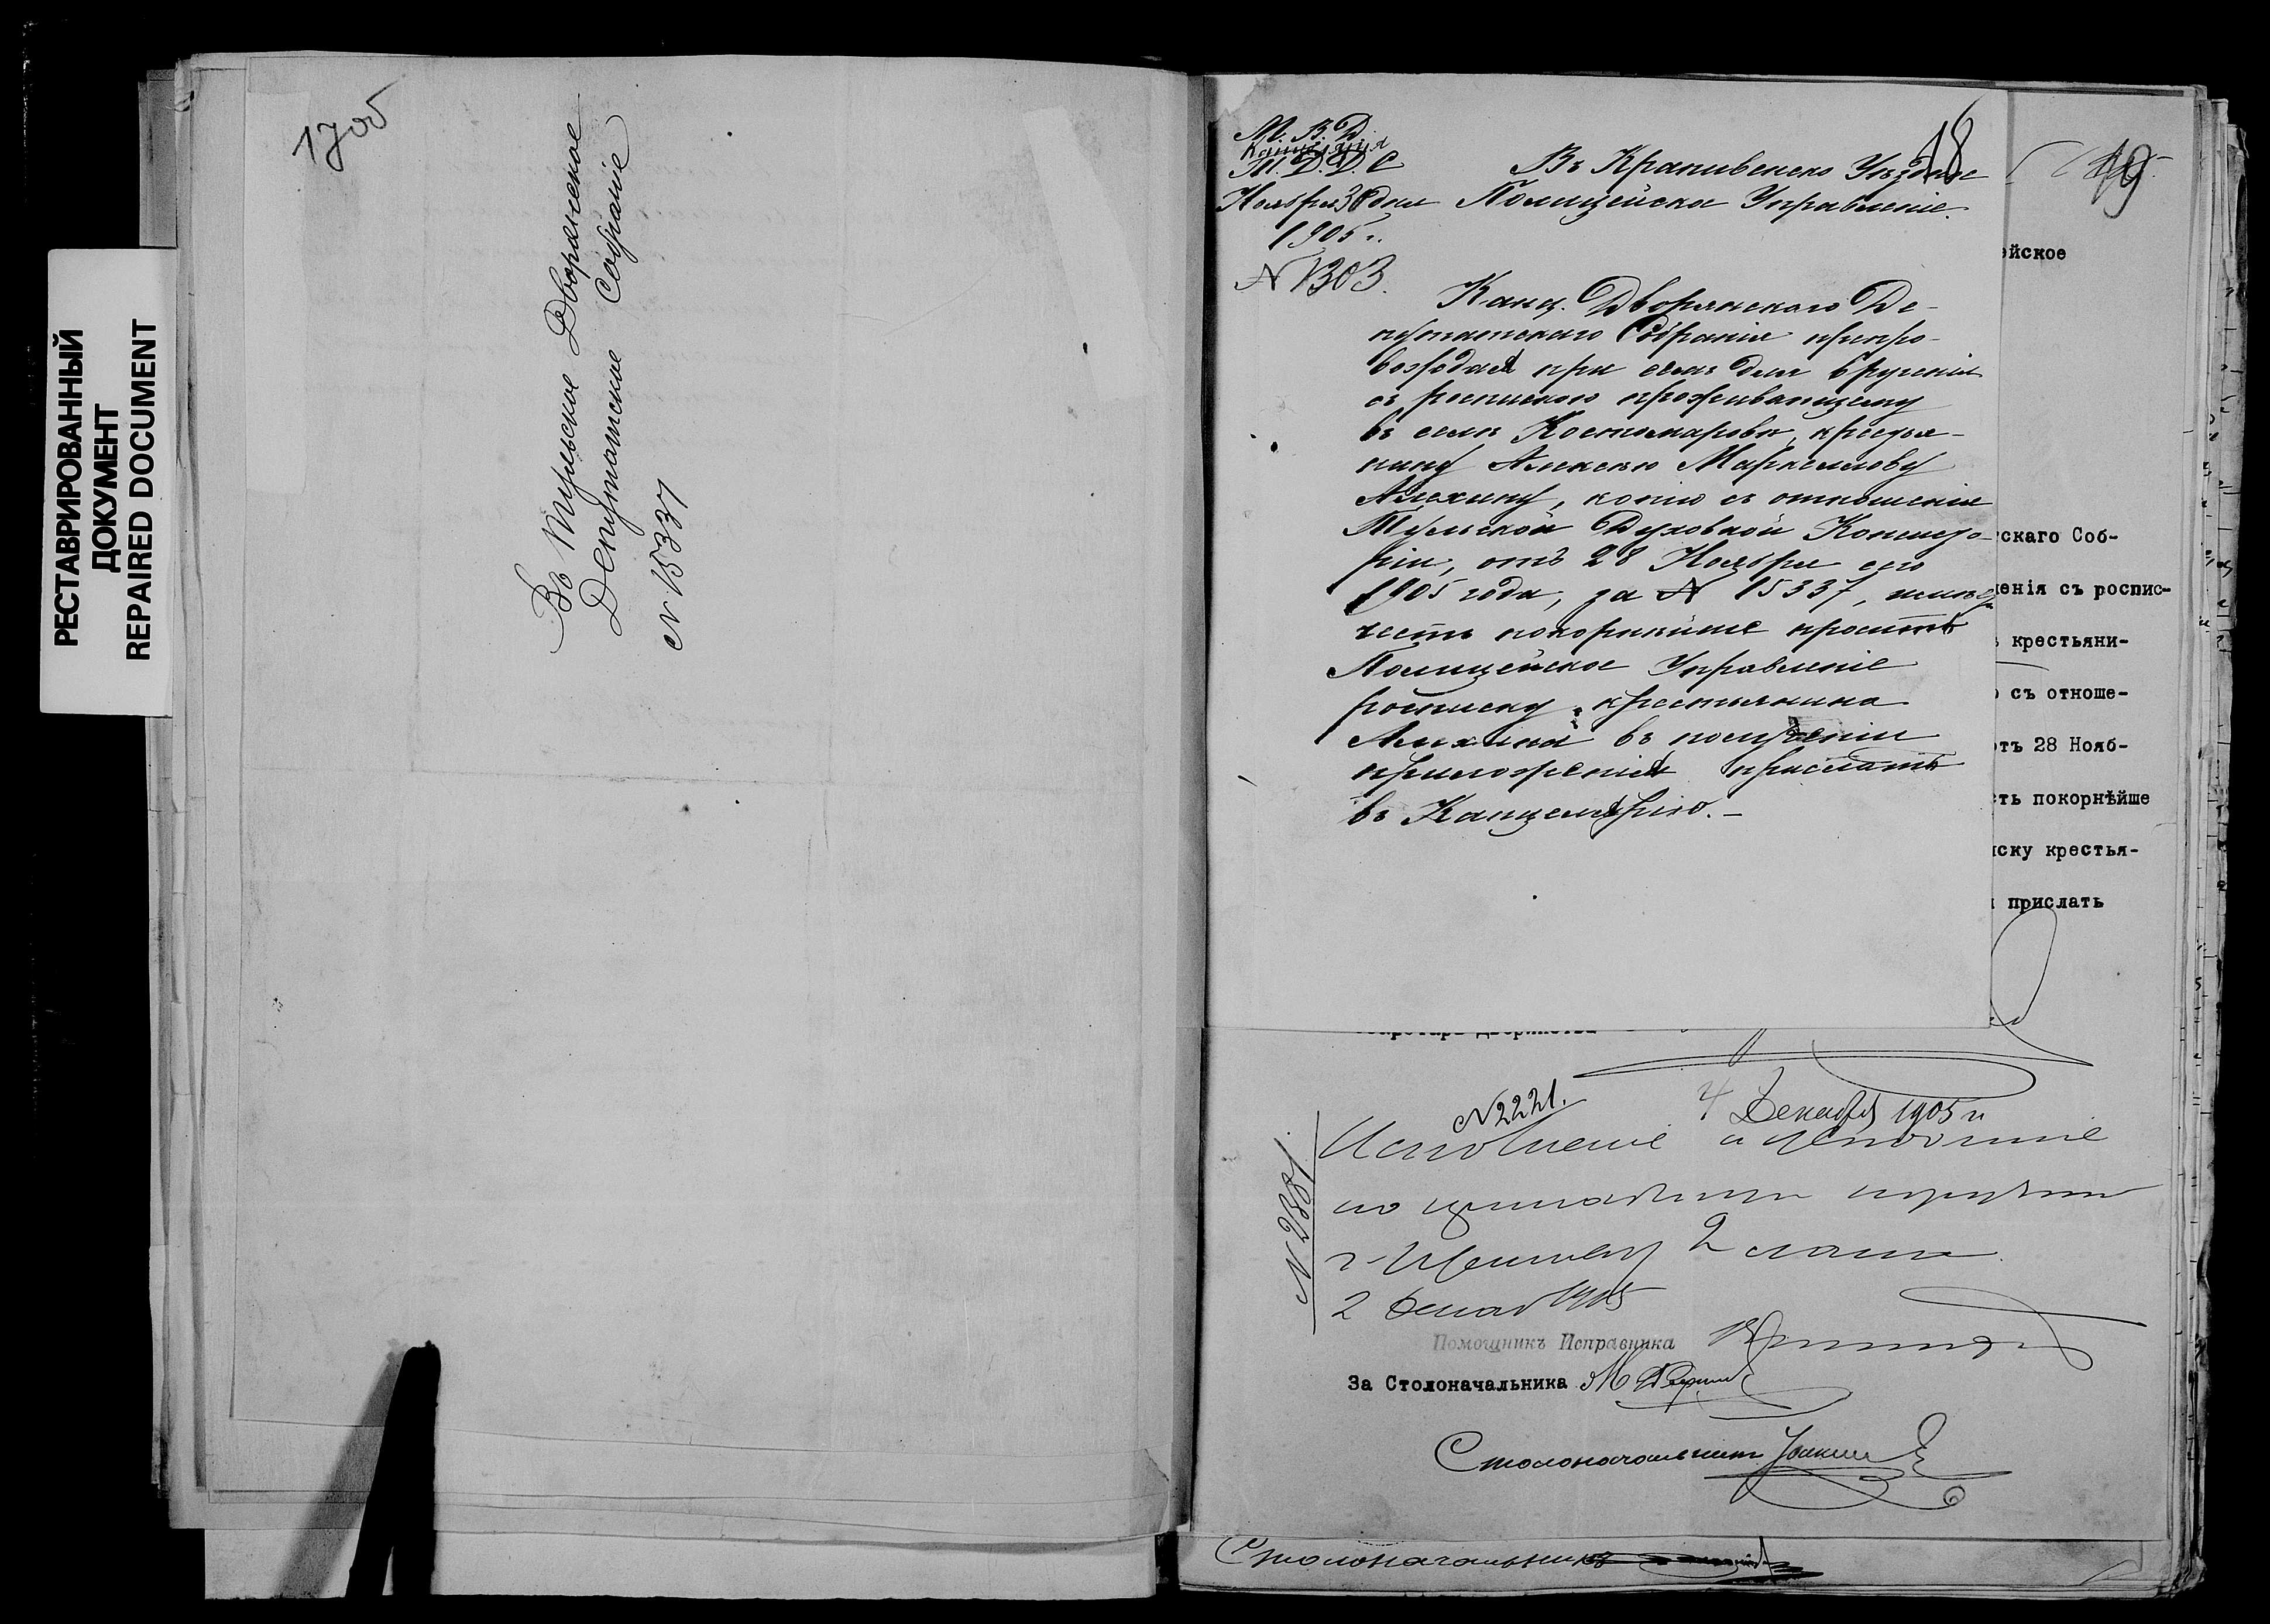 РЕСТАВРИРОВАННЫЙ
ДОКУМЕНТ
REPAIRED DOCUMENT
1705
Въ Тульское Дворянское
Депутатское Собраніе
N 15337
18
19
М. В. Д.
Канцелярія
Т. Д. Д. С
Ноября 30 дня
1905 г.
N 1303.
Въ Крапивенско Уѣздное
Полицейское Управленіе.
Канц. Дворянскаго Де-
путатскаго Собранія препро-
вождая при семъ для врученія
съ роспискою проживающему
въ селѣ Костомаровѣ, крестья-
нину Алексѣю Маркеллову
Алехину, копію съ отношенія
Тульской Духовной Консисто-
ріи, отъ 28 Ноября сего
1905 года, за N 15337, имѣетъ
честь покорнѣйше просить
Полицейское Управленіе
росписку крестьянина
Алехина въ полученіи
приложенія прислать
въ Канцелярію.-
ейское
скаго Соб-
ченія съ роспис-
крестьяни-
съ отноше-
отъ 28 Нояб-
сть покорнѣйше
иску крестья-
прислать
N 2221.
4 Декабря 1905 г.
N 2881
Исполненіе
по
г. Приставу 2 стана
2 Декаб 1905
Помощникъ Исправника
За Столоначальника М
Столоначальникъ
Столоначальникъ